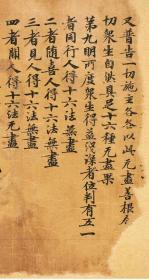 又普告一切施主各各以此无盡善根
切衆生自然具足十六種无盡果
第九明所度衆生得益深淺者位判有五一
者同行人得十六法无盡
二者隨喜人得十六法无盡
三者見人得十六法无盡
四者聞人得十六法无盡